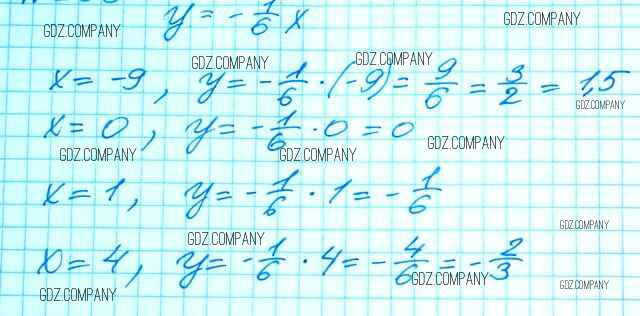 y = -1/6 x
GDZ.COMPANY GDZ.COMPANY
GDZ.COMPANY GDZ.COMPANY
x = -9, y = -1/6 · (-9) = 9/6 = 3/2 = 1,5
GDZ.COMPANY
x = 0, y = -1/6 · 0 = 0
GDZ.COMPANY GDZ.COMPANY GDZ.COMPANY
x = 1, y = -1/6 · 1 = -1/6
GDZ.COMPANY GDZ.COMPANY
x = 4, y = -1/6 · 4 = -4/6 = -2/3
GDZ.COMPANY GDZ.COMPANY GDZ.COMPANY